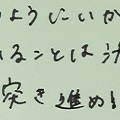 のようにいか
ることは決
突き進め!